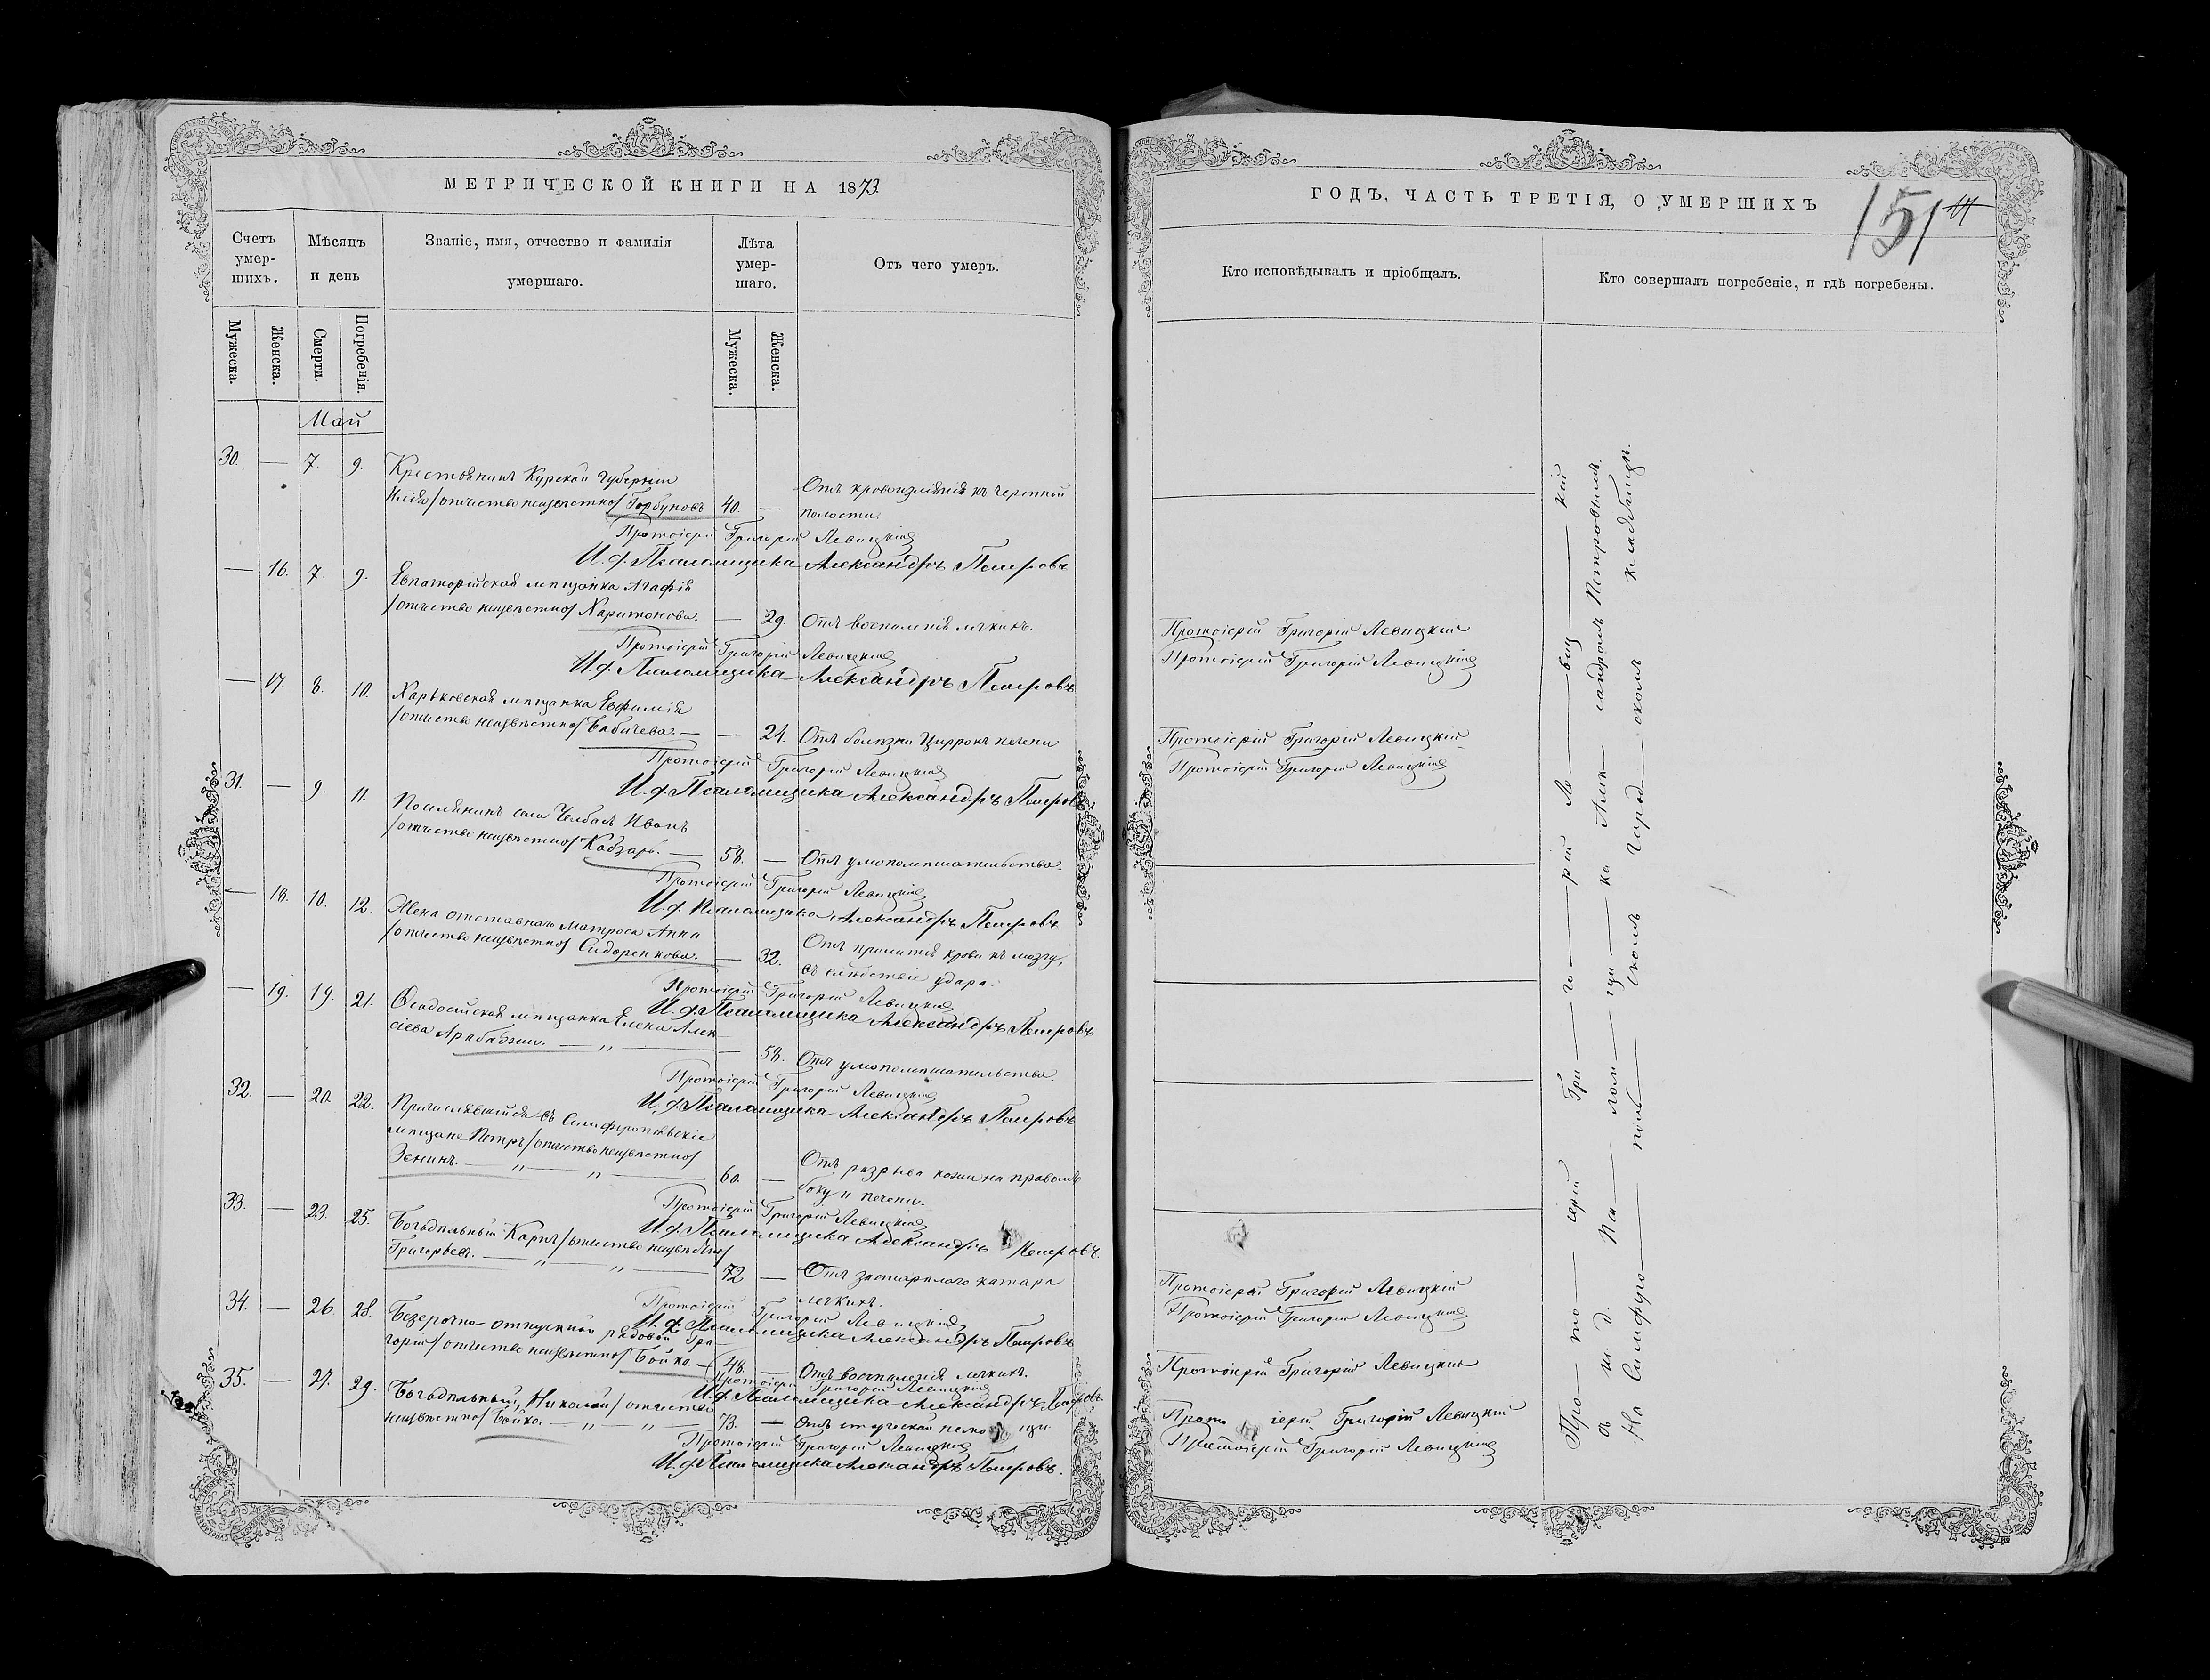 МЕТРИЧЕСКОЙ КНИГИ НА 1873
Счетъ умер-шихъ.
Мѣсяцъ и день
Званіе, имя, отчество и фамилія умершаго.
Лѣта умер-шаго.
Отъ чего умеръ.
Мужеска.
Женска.
Смерти.
Погребенія.
Мужеска.
Женска.
Май
30. — 7. 9. Крестьянинъ Курской губерніи
Илія /отчество неизвѣстно/ Горбуновъ 40. — Отъ кровоизліянія въ черепной
полости.
Протоіерей Григорій Левицкій
И. д. Псаломщика Александръ Петровъ
— 16. 7. 9. Евпаторійская мѣщанка Агафія
/отчество неизвѣстно/ Харитонова. — 29. Отъ воспаленія легкихъ.
Протоіерей Григорій Левицкій
И. д. Псаломщика Александръ Петровъ
— 17. 8. 10. Харьковская мѣщанка Евфимія
/отчество неизвѣстно/ Бабичева. — — 24. Отъ болѣзни Циррозъ печени
Протоіерей Григорій Левицкій
И. д. Псаломщика Александръ Петровъ
31. — 9. 11. Поселянинъ села Иванъ
/отчество неизвѣстно/ Кобзарь. — 58. — Отъ умопомѣшательства.
Протоіерей Григорій Левицкій
И. д. Псаломщика Александръ Петровъ
— 18. 10. 12. Жена отставнаго матроса Анна
/отчество неизвѣстно/ Сидоренкова. — 32. Отъ прилитія крови къ мозгу,
въ слѣдствіе удара.
Протоіерей Григорій Левицкій
И. д. Псаломщика Александръ Петровъ
— 19. 19. 21. Ѳеодосійская мѣщанка Елена Алек
сіева Арабаджи. — „ — — 58. Отъ умопомѣшательства.
Протоіерей Григорій Левицкій
И. д. Псаломщика Александръ Петровъ
32. — 20. 22. Причислявшійся въ Симферопольскіе
мѣщане Петръ /отчество неизвѣстно/
Зенинъ. — „ — „ — 60. — Отъ разрыва кожи на правомъ
боку и печени.
Протоіерей Григорій Левицкій
И. д. Псаломщика Александръ Петровъ.
33. — 23. 25. Богадѣльный Карпъ /отчество неизвѣстно/
Григорьевъ. — „ — „ — 72 — Отъ застарѣлого катара
легкихъ.
Протоіерей Григорій Левицкій
И. д. Псаломщика Александръ Петровъ
34. — 26. 28. Безсрочно-отпускной рядовой Гри-
горій /отчество неизвѣстно/ Бойко. — 48. — Отъ воспаленія легкихъ.
Протоіерей Григорій Левицкій
И. д. Псаломщика Александръ Петровъ.
35. — 27. 29. Богадѣльный, Николай /отчество
неизвѣстно/ Бойко. — „ — „ — 73. — Отъ старческой немощи
Протоіерей Григорій Левицкій
И. д. Псаломщика Александръ Петровъ.
ГОДЪ, ЧАСТЬ ТРЕТІЯ, О УМЕРШИХЪ
151
Кто исповѣдывалъ и пріобщалъ.
Кто совершалъ погребеніе, и гдѣ погребены.
Протоіерей Григорій Левицкій
Протоіерей Григорій Левицкій
Протоіерей Григорій Левицкій
Протоіерей Григорій Левицкій
Протоіерей Григорій Левицкій
Протоіерей Григорій Левицкій
Протоіерей Григорій Левицкій
Протоіерей Григорій Левицкій
Протоіерей Григорій Левицкій
Про — то — іерей Гри — го — рій Ле — виц — кій
съ и. д. Пса — лом — щи — ка Алек — сандромъ Петровымъ.
На Симферо — поль — скомъ город — скомъ кладбищѣ.